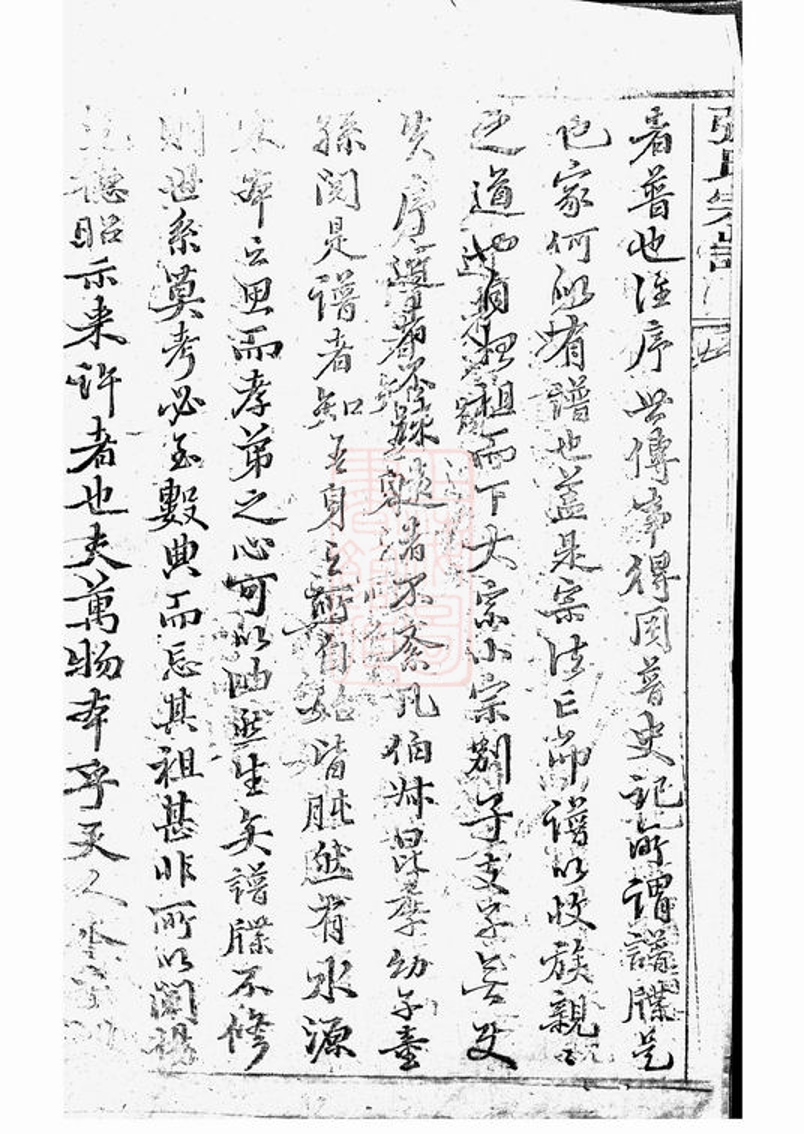 張氏宗譜
者普也注序世傳事得因普史記所謂譜牒是
也家何以有譜也蓋是宗法亡而譜以收族親親
之道也自祖而下大宗小宗別子支子昭
失序遠者不疎不紊凡伯叔昆季幼子童
孫閱是譜者知吾身之所自始皆肫然有水源
木本之思而孝弟之心可以油然生矣譜牒不修
則世系莫考必至數典而忘其祖甚非所以闡揚
德昭示來許者也夫萬物本乎天人